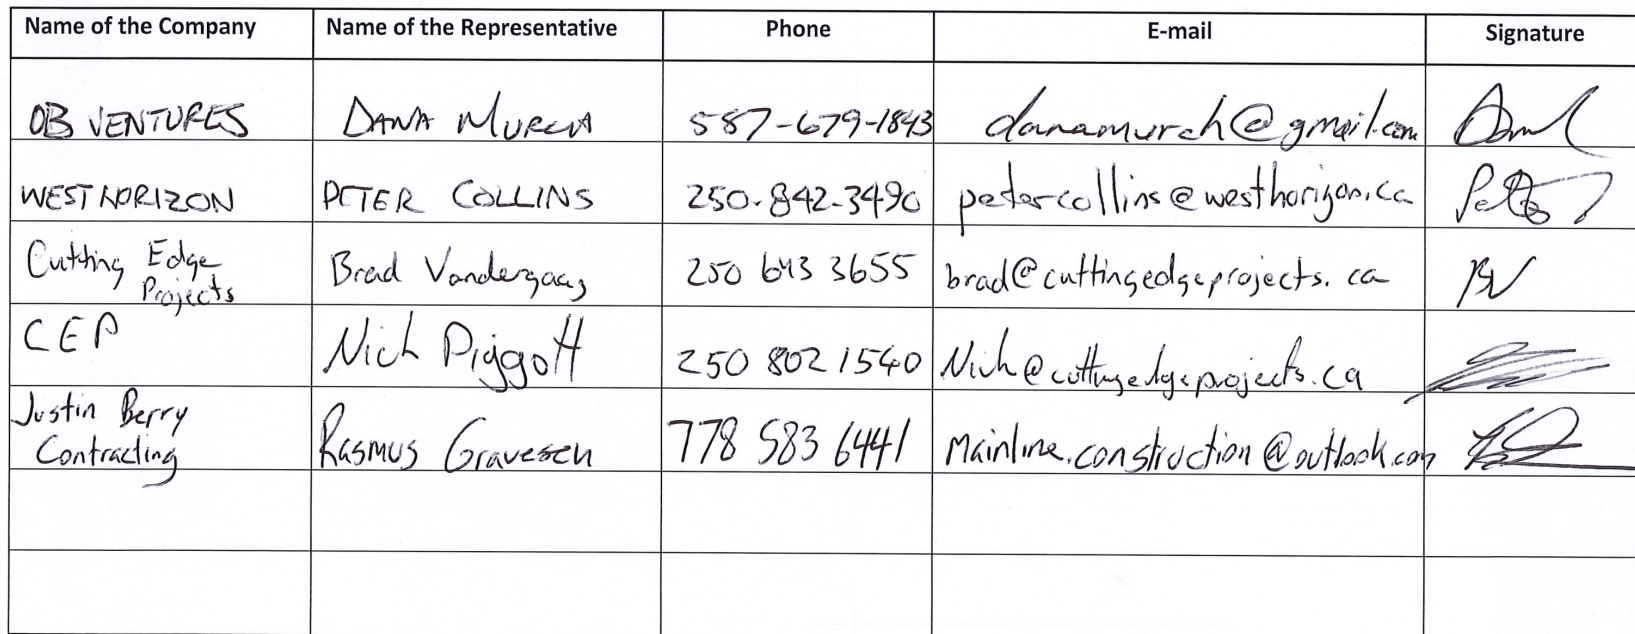 Name of the Company Name of the Representative Phone E-mail Signature
OB VENTURES DANA MURCH 587-679-1843 danamurch@gmail.com
WESTHORIZON PETER COLLINS 250-842-3490 petercollins@westhorizon.ca
Cutting Edge Projects Brad Vandergaag 250 643 3655 brad@cuttingedgeprojects.ca BV
CEP Nick Piggott 250 802 1540 Nick@cuttingedgeprojects.ca
Justin Berry Contracting Rasmus Gravesen 778 583 6441 mainline.construction@outlook.com